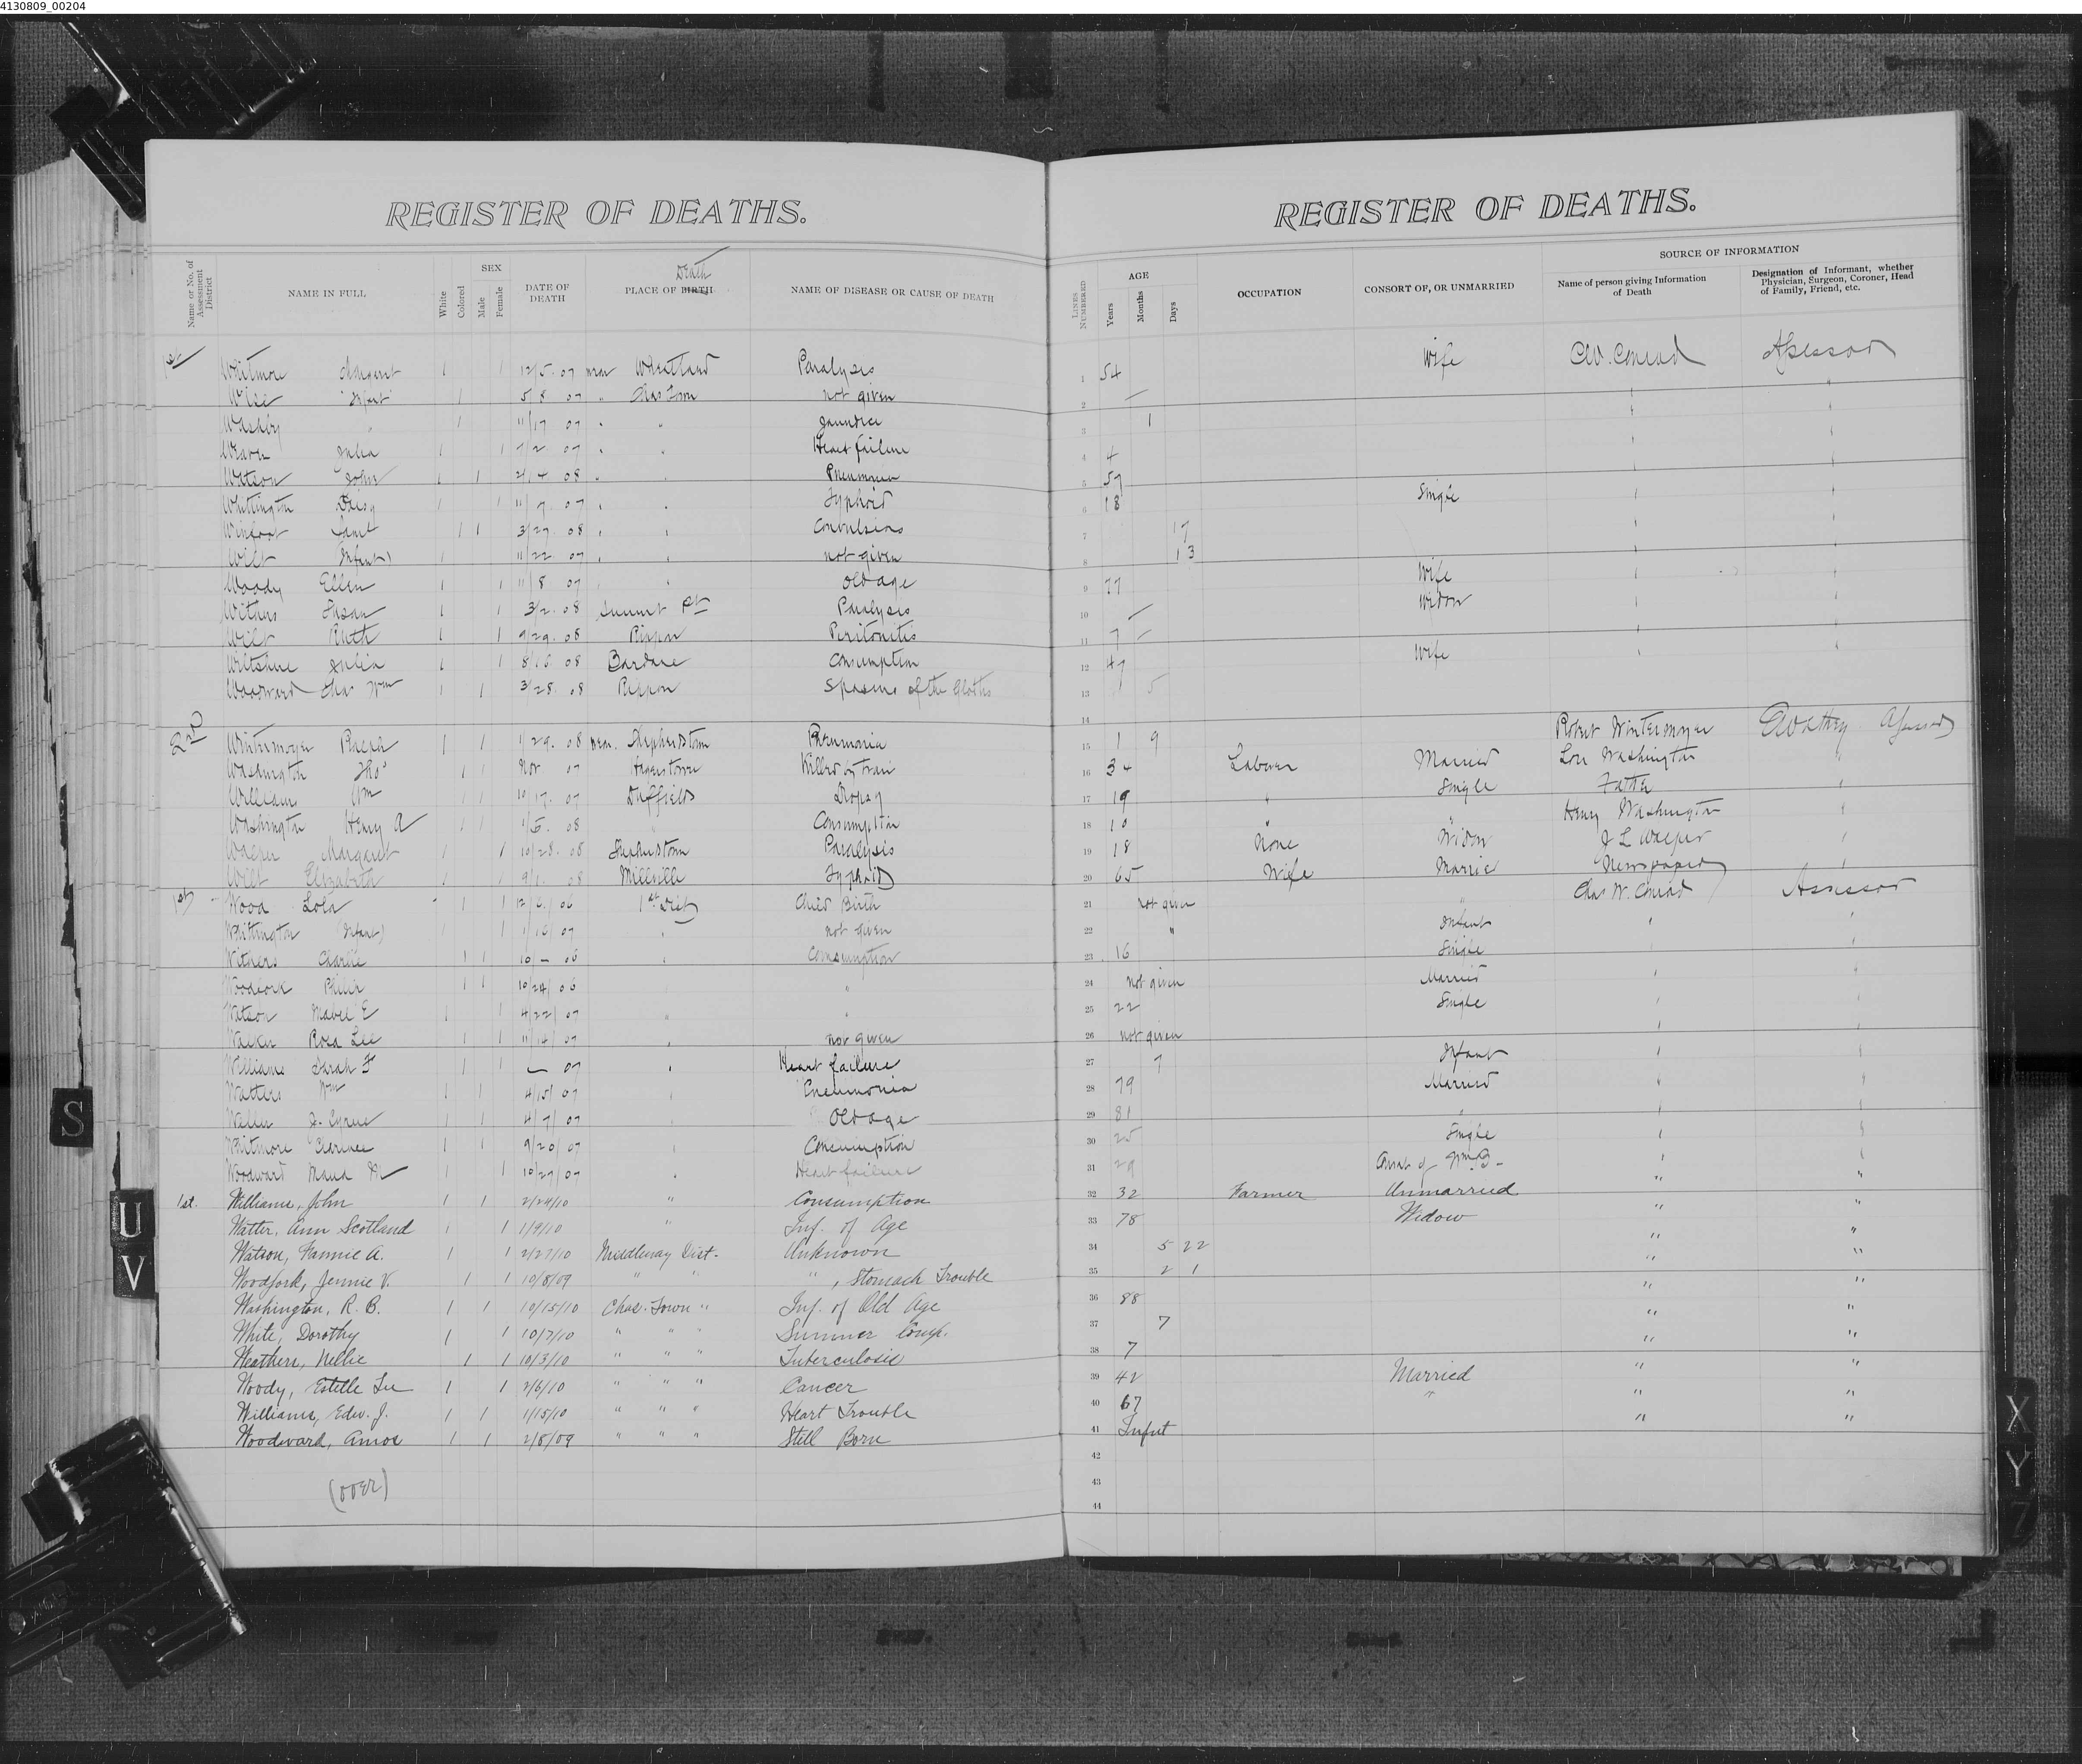 4130809_00204
REGISTER OF DEATHS.
Name or No. of Assessment District
NAME IN FULL
White
Colored
SEX
Male
Female
DATE OF DEATH
Death
PLACE OF BIRTH
NAME OF DISEASE OR CAUSE OF DEATH
1st Whitmore Margaret 1 1 12/5 07 near Wheatland Paralysis
Wise Infant 1 5/8 07 " Chas Town not given
" 1 11/17 07 " " Jaundice
Julia 1 1 7/2 07 " " Heart failure
Watson John 1 1 08 " " Pneumonia
Whittington Daisy 1 1 11/7 07 " " Typhoid
Saml 1 1 3/27 08 " " Convulsions
Wilt Infant 1 11/22 07 " " not given
Woody Ellen 1 1 11/8 07 " " Old age
Withers Susan 1 1 3/2 08 Summit Pt Paralysis
Wilt Ruth 1 1 9/29 08 Rippon Peritonitis
Wiltshire Julia 1 1 8/16 08 Bardane Consumption
Woodward Chas Wm 1 1 3/28 08 Rippon Spasms of the Glottis
2nd Wintermoyer 1 1 1/29 08 near Shepherdstown Pneumonia
Washington Thos 1 1 Nov 07 Hagerstown Killed by train
Williams Wm 1 1 10/17 07 Duffields Dropsy
Washington Henry A 1 1 1/5 08 " Consumption
Margaret 1 1 10/28 08 Shepherdstown Paralysis
Wilt Elizabeth 1 1 9/1 08 Millville Typhoid
1st Wood Lola 1 1 12/6/06 1st Dist Child Birth
Whittington (Infant) 1 1 1/16/07 " not given
Withers Charlie 1 1 10/— 06 " Consumption
Woodfork Philip 1 1 10/24/06 "
Watson Mabel E 1 1 4/22/07 " "
Walker Rosa Lee 1 1 11/14/07 " not given
Williams Sarah F 1 1 — 07 " Heart failure
Watters Wm 1 1 4/15/07 " Pneumonia
Waller J. Cyrus 1 1 4/7/07 Old age
Whitmore Clarence 1 1 9/20/07 " Consumption
Woodward Maud M 1 1 10/27/07 " Heart failure
1st. Williams, John 1 1 2/24/10 " Consumption
Watter, Ann Scotland 1 1 1/9/10 " Inf. of Age
Watson, Fannie A. 1 1 2/27/10 Middleway Dist. Unknown
Woodfork, Jennie V. 1 1 10/8/09 " " " , Stomach Trouble
Washington, R. B. 1 1 10/15/10 Chas. Town " Inf. of Old Age
White, Dorothy 1 1 10/7/10 " " " Summer Comp.
Weathers, Nellie 1 1 10/3/10 " " " Tuberculosis
Woody, Estelle Lee 1 1 2/6/10 " " " Cancer
Williams, Edw. J. 1 1 1/15/10 " " " Heart Trouble
Woodward, Amos 1 1 2/8/09 " " " Still Born
(over)
REGISTER OF DEATHS.
LINES NUMBERED
AGE
Years
Months
Days
OCCUPATION
CONSORT OF, OR UNMARRIED
SOURCE OF INFORMATION
Name of person giving Information of Death
Designation of Informant, whether Physician, Surgeon, Coroner, Head of Family, Friend, etc.
1 54 Wife C.W. Conrad Assessor
2 — " "
3 1 " "
4 4 " "
5 57 " "
6 18 Single " "
7 17 " "
8 13 " "
9 77 Wife " "
10 — Widow " "
11 7 — " "
12 47 Wife " "
13 5
14
15 1 9 Robert Wintermoyer Assessor
16 34 Laborer Married Washington "
17 19 " Single Father "
18 10 " Henry Washington "
19 18 None Widow J L "
20 65 Wife Married Newspaper "
21 not given " Chas W. Conrad Assessor
22 " Infant " "
23 16 Single " "
24 not given Married " "
25 22 Single " "
26 not given " "
27 7 Infant " "
28 79 Married " "
29 81 " " "
30 25 Single " "
31 29 Const of Wm. B. " "
32 32 Farmer Unmarried " "
33 78 Widow " "
34 5 22 " "
35 2 1 " "
36 88 " "
37 7 " "
38 7 " "
39 42 Married " "
40 67 " " "
41 Infnt " "
42
43
44
S
U
V
X
Y
Z